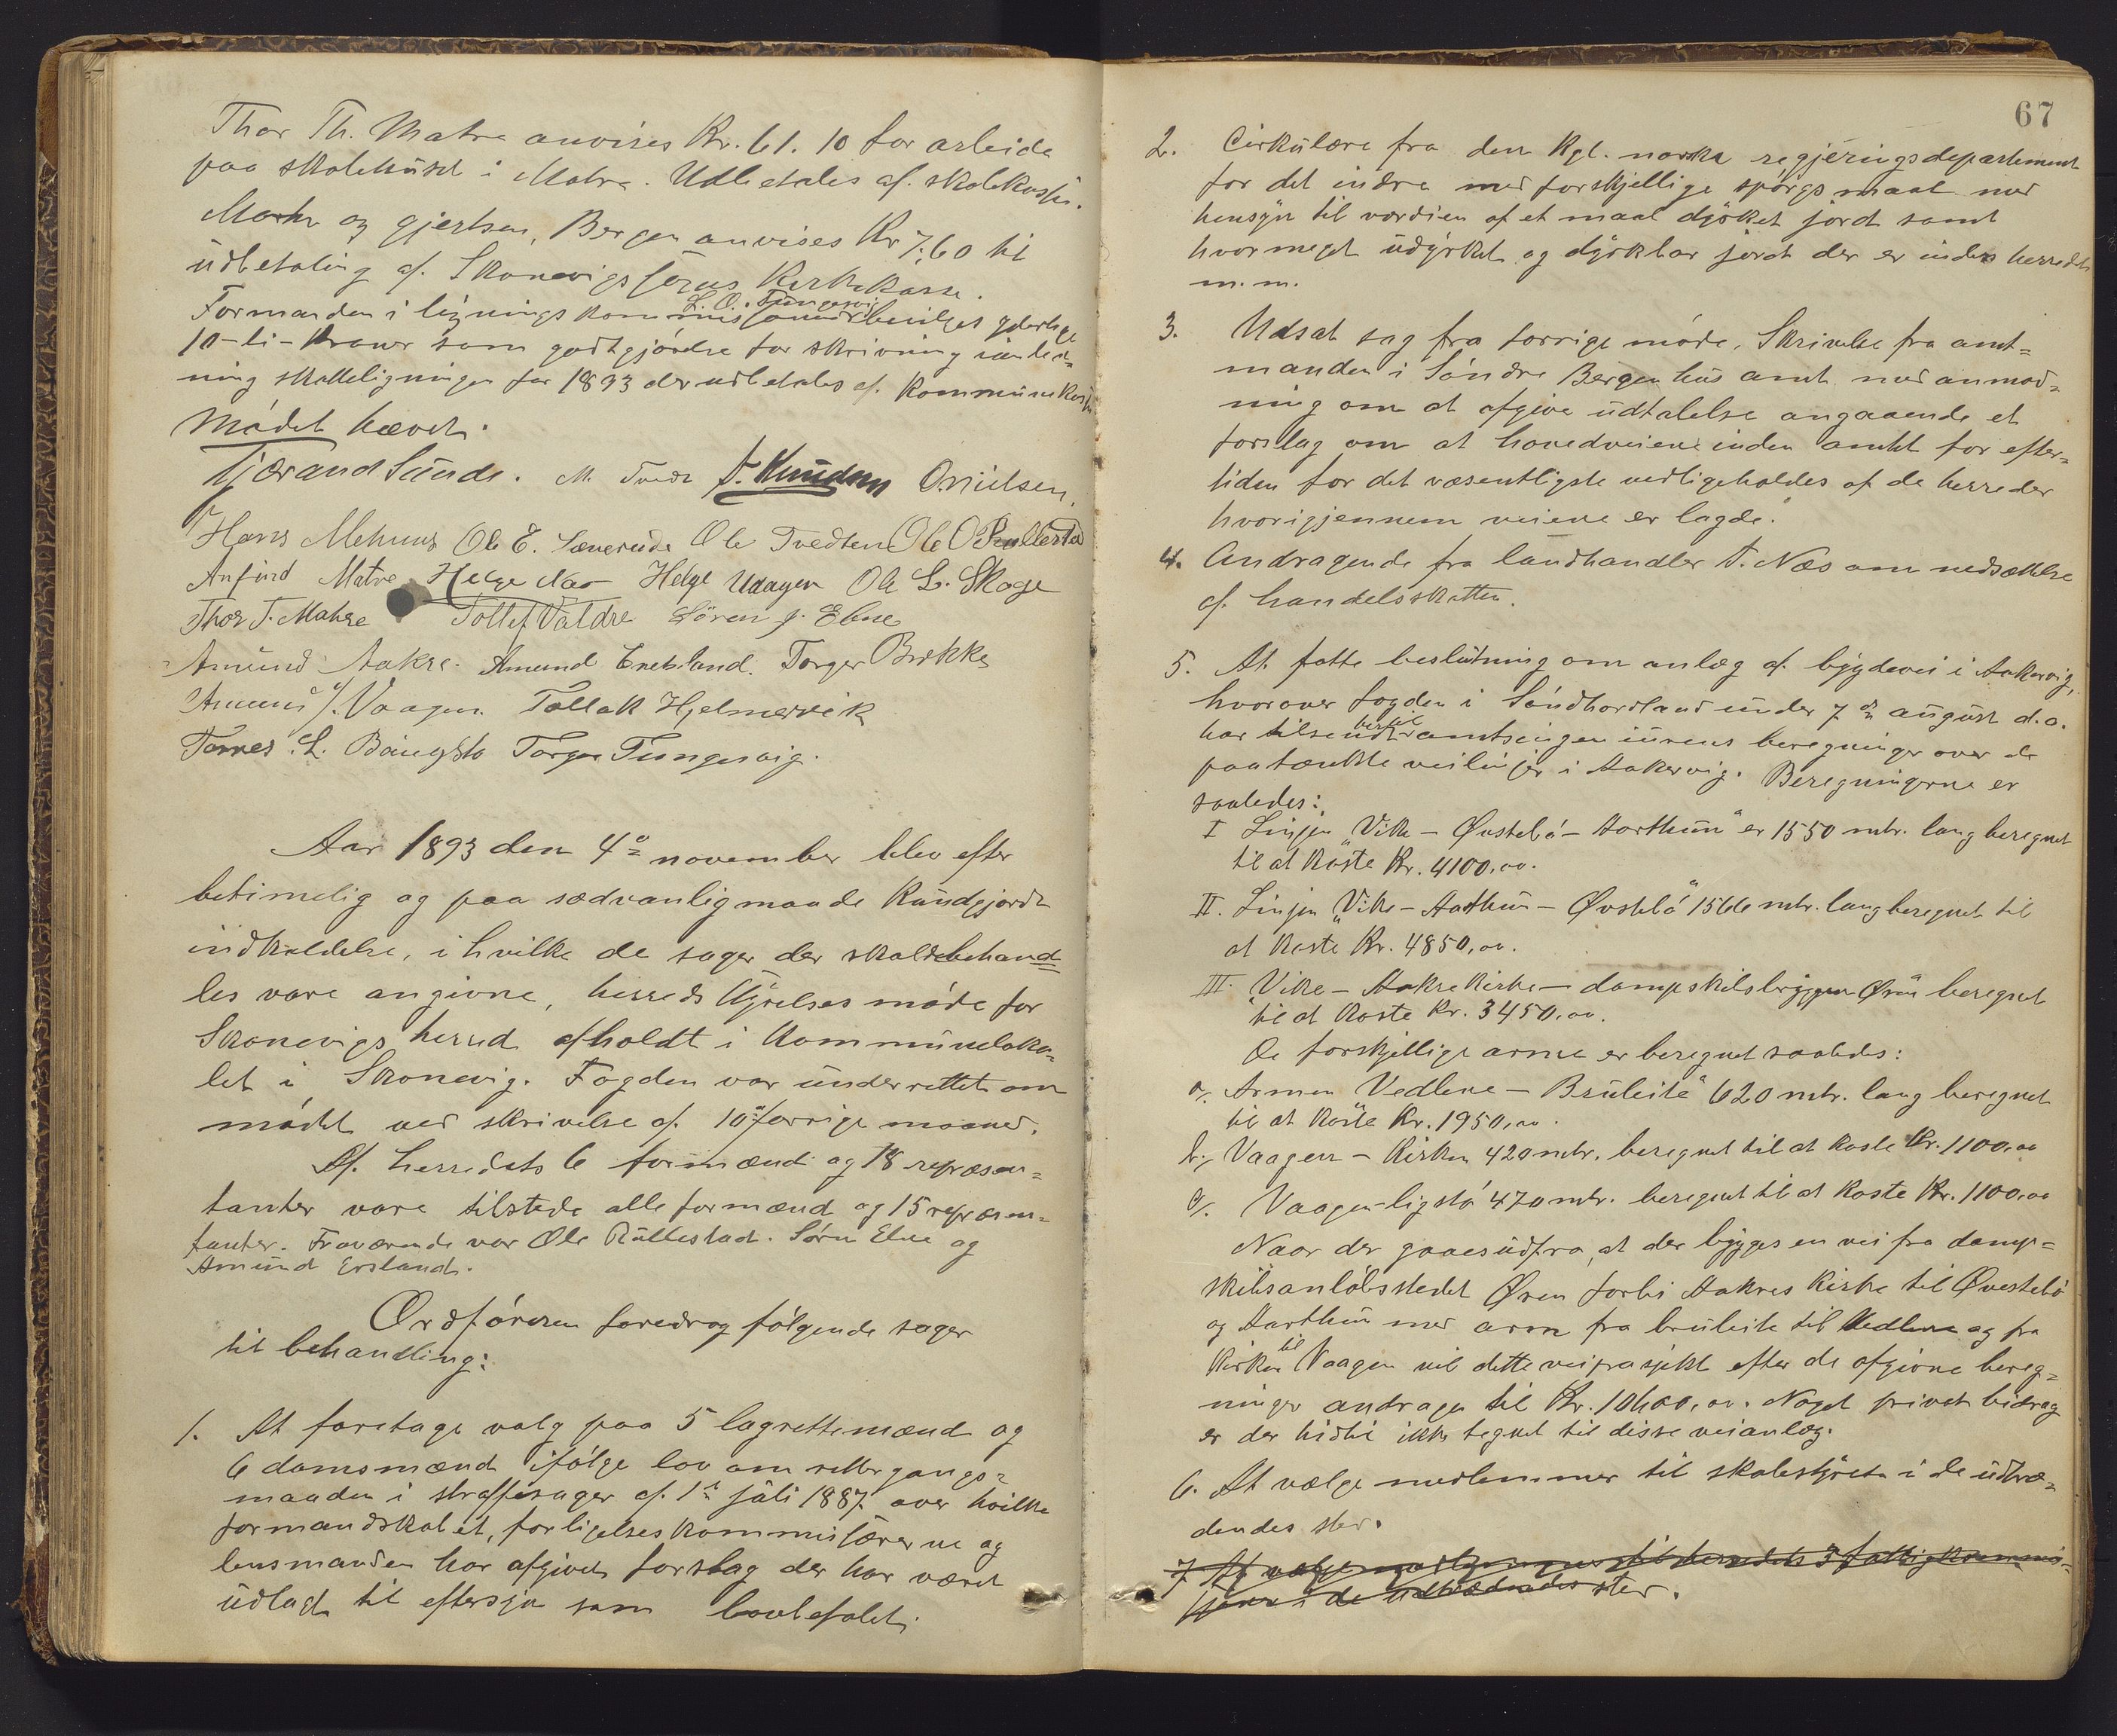 Thor Th. Matre anvises Kr. 61.10 for arbeide
paa skolehuset i Matre. Udbetales af skolekassen.
Mohn og gjertsen, Bergen anvises Kr 7,60 til
udbetaling af Skonevigs sogns Kirkekasse.
L. O. Tungesvig
Formanden i ligningskommissionen bevilges yderlige
10-ti-Kroner som godtgjörelse for skrivning i anled-
ning skatteligningen for 1893 der udbetales af Kommunekassen
Mödet hævet.
Tjærand Sunde. M. Tvedt T. Knudsen O. Nielsen.
Hans Mehuus Ole E. Sævereide Ole Tvedten Ole O Rullestad
Anfind Matre Helge Næs Helge Vaagen Ole L. Skoge
Thor T. Matre Tollef Valdre Sören J. Ebne
Amund Aakre. Amund Ersland. Torger Brekke
Amund J. Vaagen Tollak Hjelmervik
Torger Tungesvig.
Aar 1893 den 4de november blev efter
betimelig og paa sædvanlig maade kundgjordt
indkaldelse, i hvilke de sager der skulde behand
les vare angivne, herredsstyrelsesmöde for
Skonevigs herred afholdt i Kommuneloka-
let i Skonevig. Fogden var underrettet om
mödet ved skrivelse af 10de forrige maaned.
Af herredets 6 formænd og 18 repræsen-
tanter vare tilstede alle formænd og 15 repræsen-
tanter. Fraværende var Ole Rullestad. Sören Ebne og
Amund Ersland.
Ordföreren foredrog fölgende sager
til behandling:
1. At foretage valg paa 5 lagrettemænd og
6 domsmænd ifölge lov om rettergangs-
maaden i straffesager af 1ste juli 1887 over hvilke
formandskabet, forligelseskommissærerne og
lensmanden har afgivet forslag der har været
udlagt til eftersyn som lovbefalet.
67
2. Cirkulære fra den Kgl. norske regjeringsdepartement
for det indre med forskjellige spörgsmaal med
hensyn til værdien af et maal dyrket jord samt
hvormeget udyrket og dyrkbar jord der er inden herredet
m. m.
3. Udsat sag fra forrige möde. Skrivelse fra amt-
manden i Söndre Bergenhus amt med anmod-
ning om at afgive udtalelse angaaende et
forslag om at hovedveiene inden amtet for efter-
tiden for det væsentligste vedligeholdes af de herreder
hvorigjennem veiene er lagde.
4. Andragende fra landhandler T. Næs om nedsættelse
af handelsskatten.
5. At fatte beslutning om anlæg af bygdevei i Aakervig,
hvorover fogden i Söndhordland under 7de august d.a.
hertil
har tilsendt amtsingeniörens beregninger over de
paatænkte veilinjer i Aakervig. Beregningerne er
saaledes:
I Linjen "Vike - Øvstebö - Aarthun" er 1550 mtr. lang beregnet
til at koste Kr. 4100,00.
II. Linjen "Vike - Aarthun - Øvstebö" 1566 mtr. lang beregnet til
at koste Kr. 4850,00.
III. "Vike - Aakre kirke - dampskibsbryggen Øren" beregnet
til at koste Kr. 3450,00.
De forskjellige arme er beregnet saaledes:
a/. Armen Vedlene - Bruleite" 620 mtr. lang beregnet
til at koste Kr. 1950,00.
b./ Vaagen - Kirken 420 mtr. beregnet til at koste Kr. 1100,00
c/. Vaagen - 470 mtr. beregnet til at koste Kr. 1100,00
Naar der gaaes udfra, at der bygges en vei fra damp-
skibsanlöbsstedet Øren forbi Aakres Kirke til Øvestebö
og Aarthun med arm fra bruleite til Vedlene og fra
til
kirken Vaagen vil dette veiprosjekt efter de afgivne bereg-
ninger andrage til Kr. 10600,00. Noget privat bidrag
er der hidtil ikke tegnet til disse veianlæg.
6. At vælge medlemmer til skolestyret i de udtræ-
dendes sted.
7. At vælge medlemmer til herredets 3 fattigkommis-
sjoner i de udtrædendes sted.